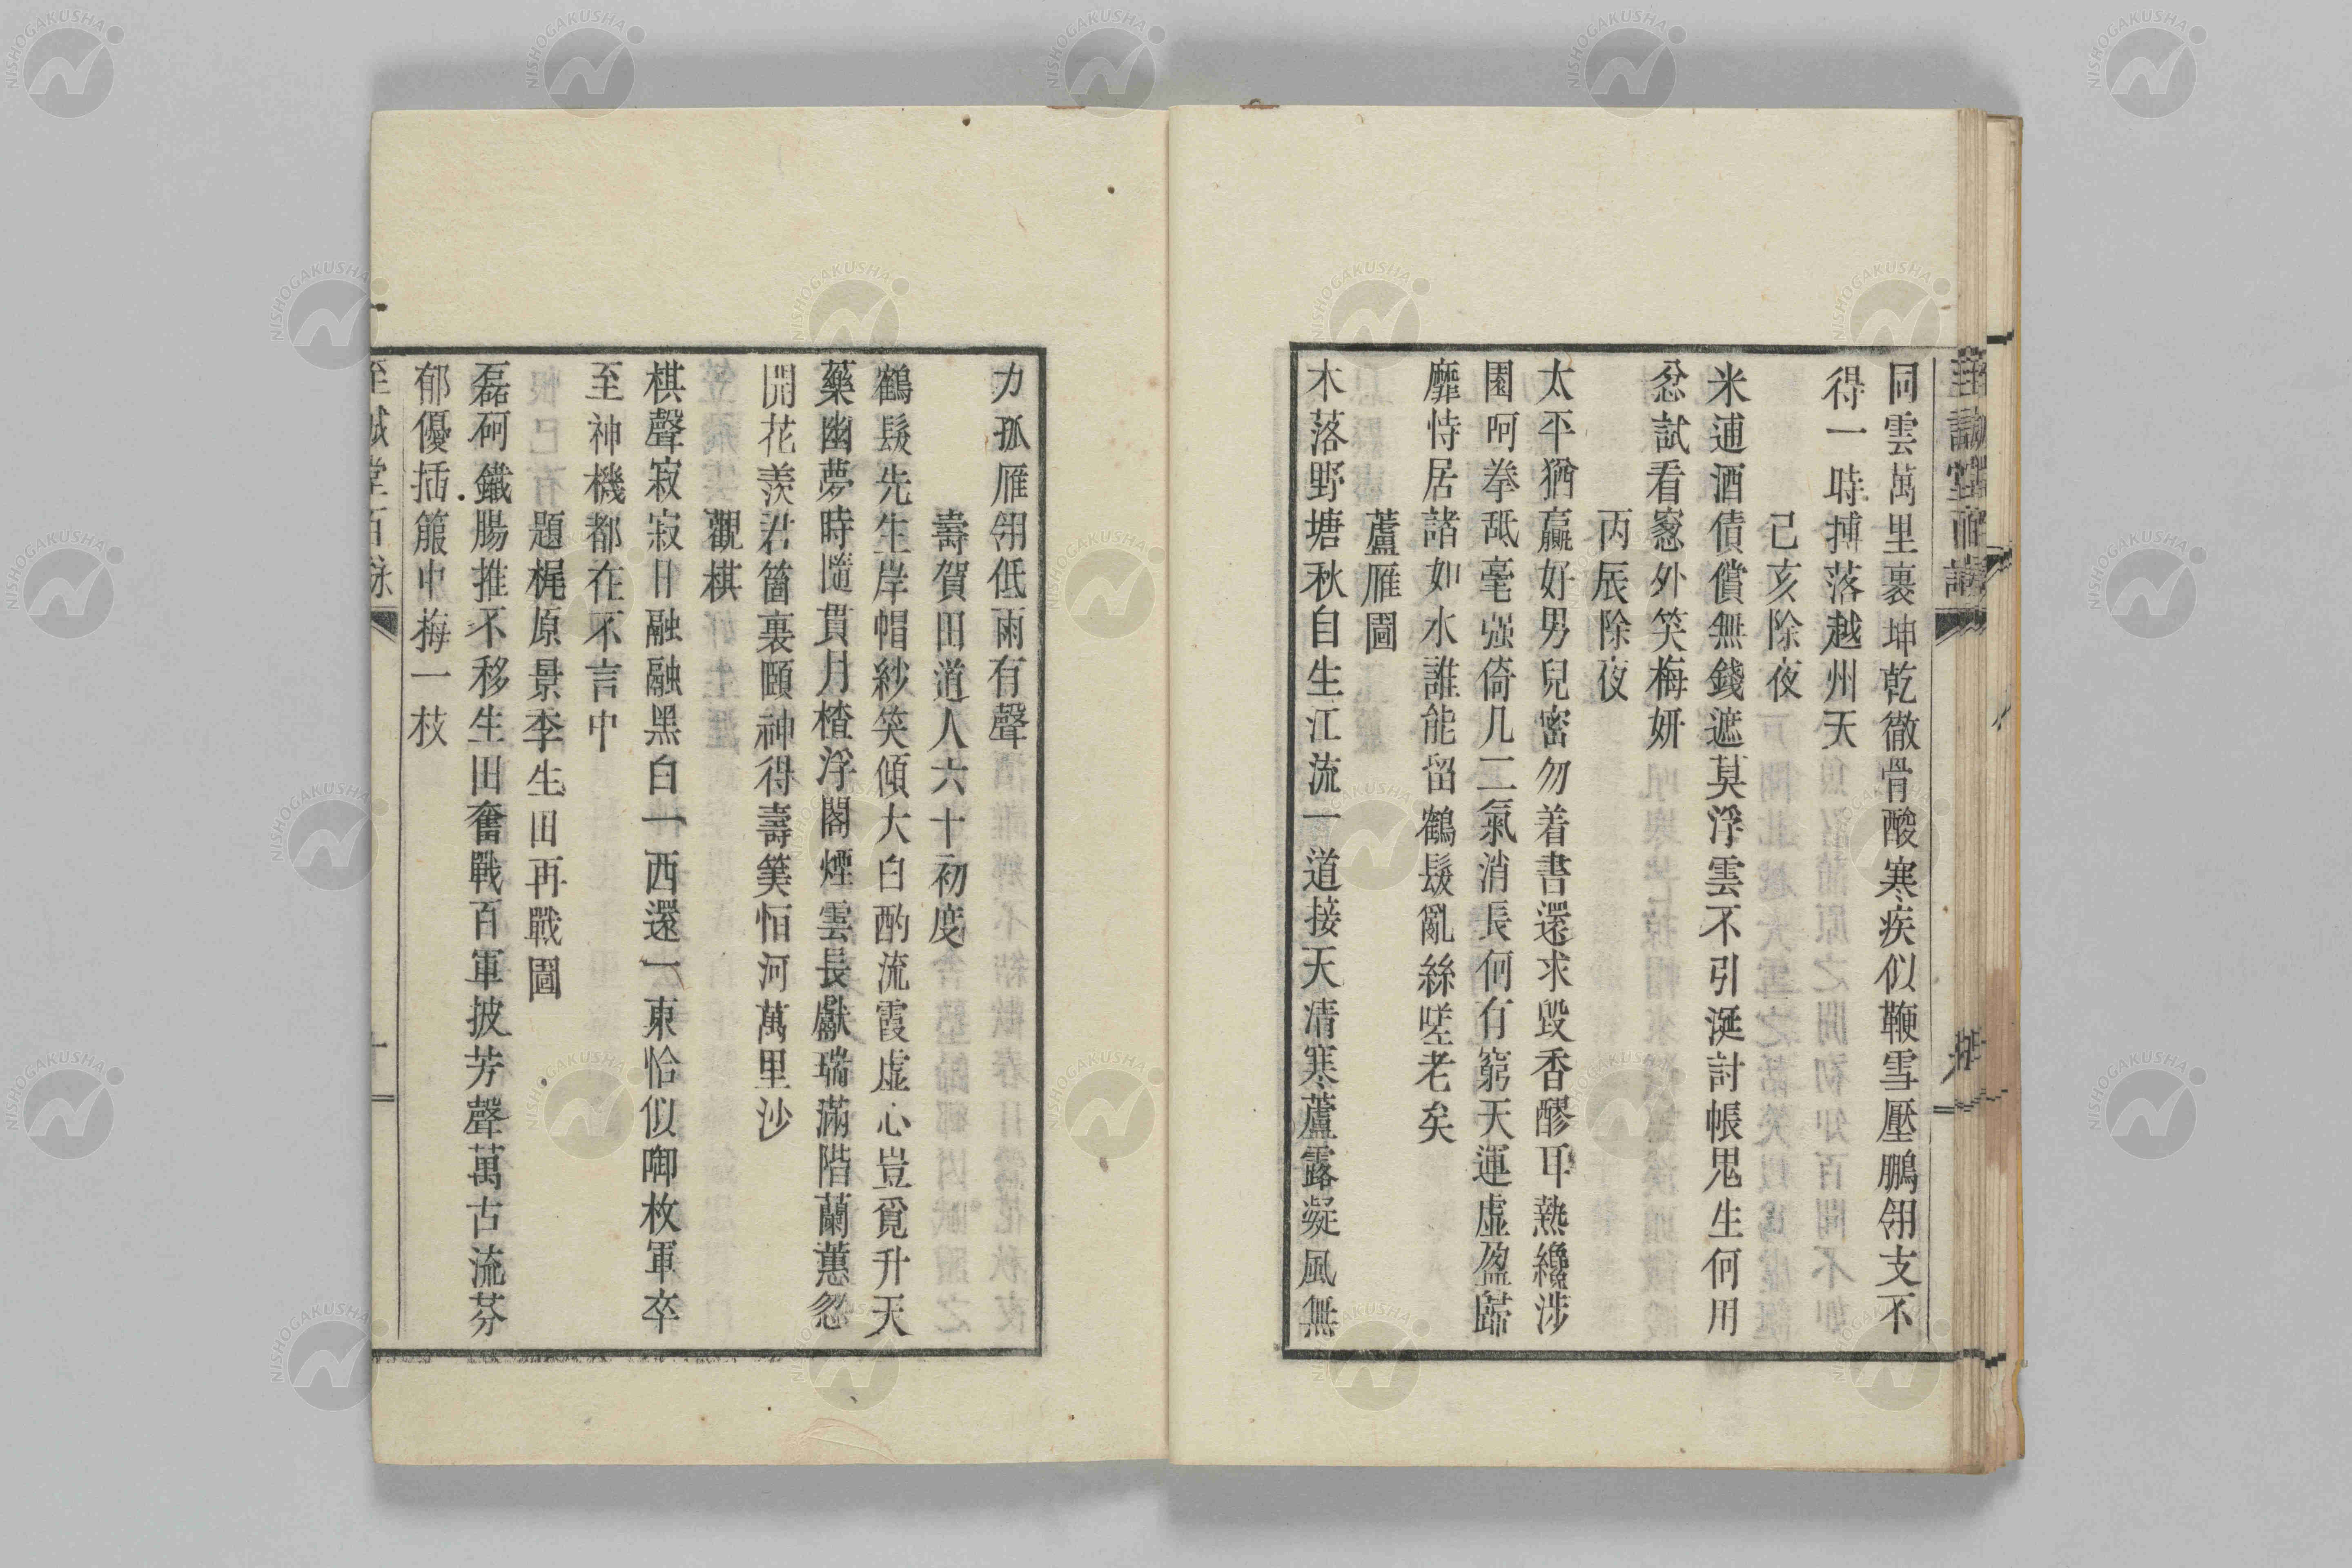 同雲萬里裹坤乾徹骨酸寒疾似鞭雪壓鵬翎支不
得一時搏落越州天
己亥除夜
米逋酒債償無錢遮莫浮雲不引涎討帳鬼生何用
忿試看窻外笑梅妍
丙辰除夜
太平猶贏好男兒密勿着書還求毀香醪耳熱纔涉
園呵拳舐毫强倚几二氣消長何有窮天運虛盈歸
靡恃居諸如水誰能留鶴髮亂絲嗟老矣
蘆雁圖
木落野塘秋自生江流一道接天清寒蘆露凝風無
力孤雁翎低雨有聲
壽賀田道人六十初度
鶴髮先生岸帽紗笑傾大白酌流霞虛心豈覓升天
藥幽夢時隨貫月楂浮閣煙雲長獻瑞滿階蘭蕙忽
開花羨君箇裏頤神得壽筭怕河萬里沙
觀棋
棋聲寂寂日融融黑白一西還一東恰似啣枚軍卒
至神機都在不言中
題梶原景季生田再戰圖
磊砢鐵腸推不移生田奮戰百軍披芳聲萬古流芬
郁優插箙中梅一枝
至誠堂百詠
NISHOGAKUSHA